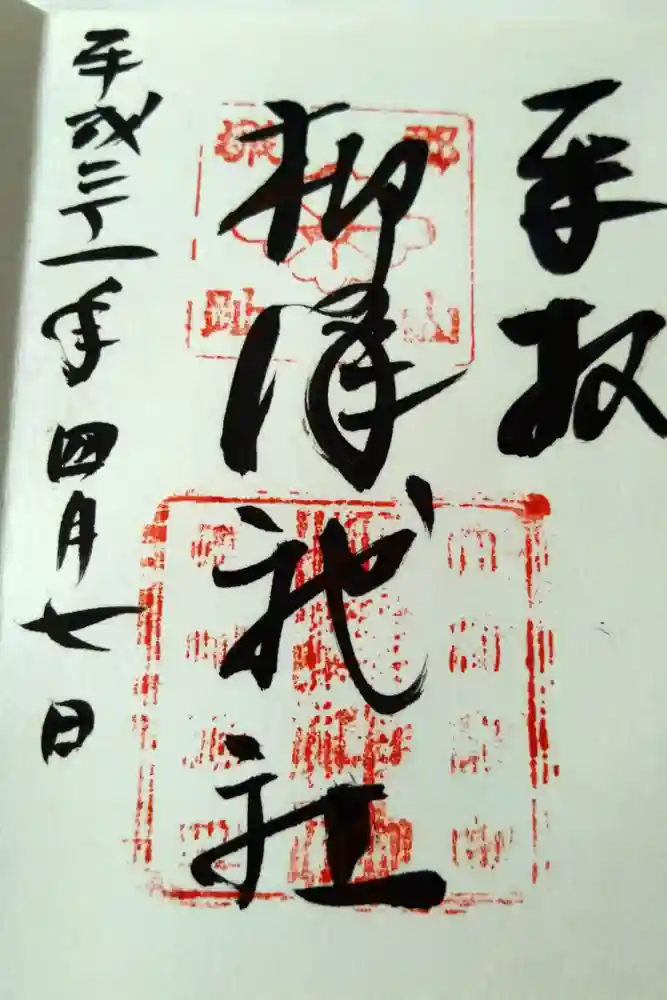 奉拝
郡山
城址
柳澤神社
平成三十一年四月七日